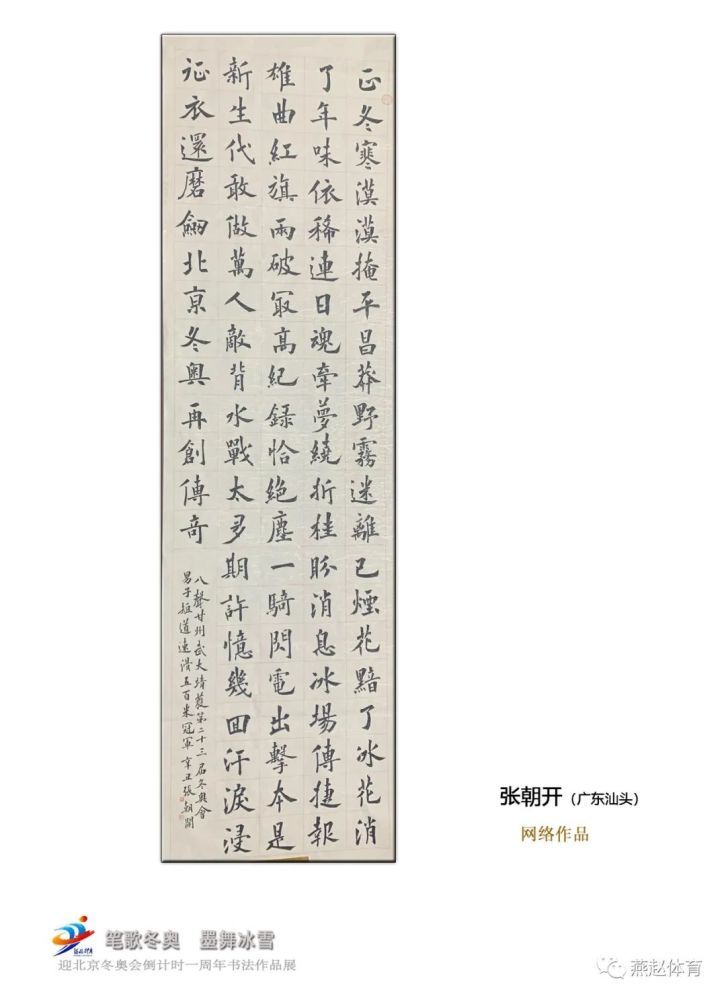 正冬寒漠漠掩平昌莽野霧迷離已煙花黯了冰花消
了年味依稀連日魂牽夢繞折桂盼消息冰場傳捷報
雄曲紅旗兩破冣高紀録恰絕塵一騎閃電出擊本是
新生代敢做萬人敵背水戰太多期許憶幾回汗淚浸
征衣還磨劒北京冬奥再創傳奇
八聲甘州武大靖獲第二十三届冬奥會
男子短道速滑五百米冠軍 辛丑張朝開
张朝开（广东汕头）
网络作品
笔歌冬奥 墨舞冰雪
迎北京冬奥会倒计时一周年书法作品展
燕赵体育